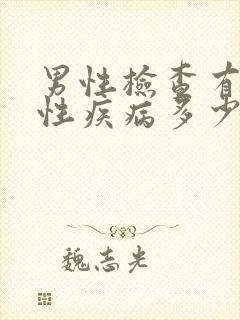 男性檢查有
性疾病多少
魏志光